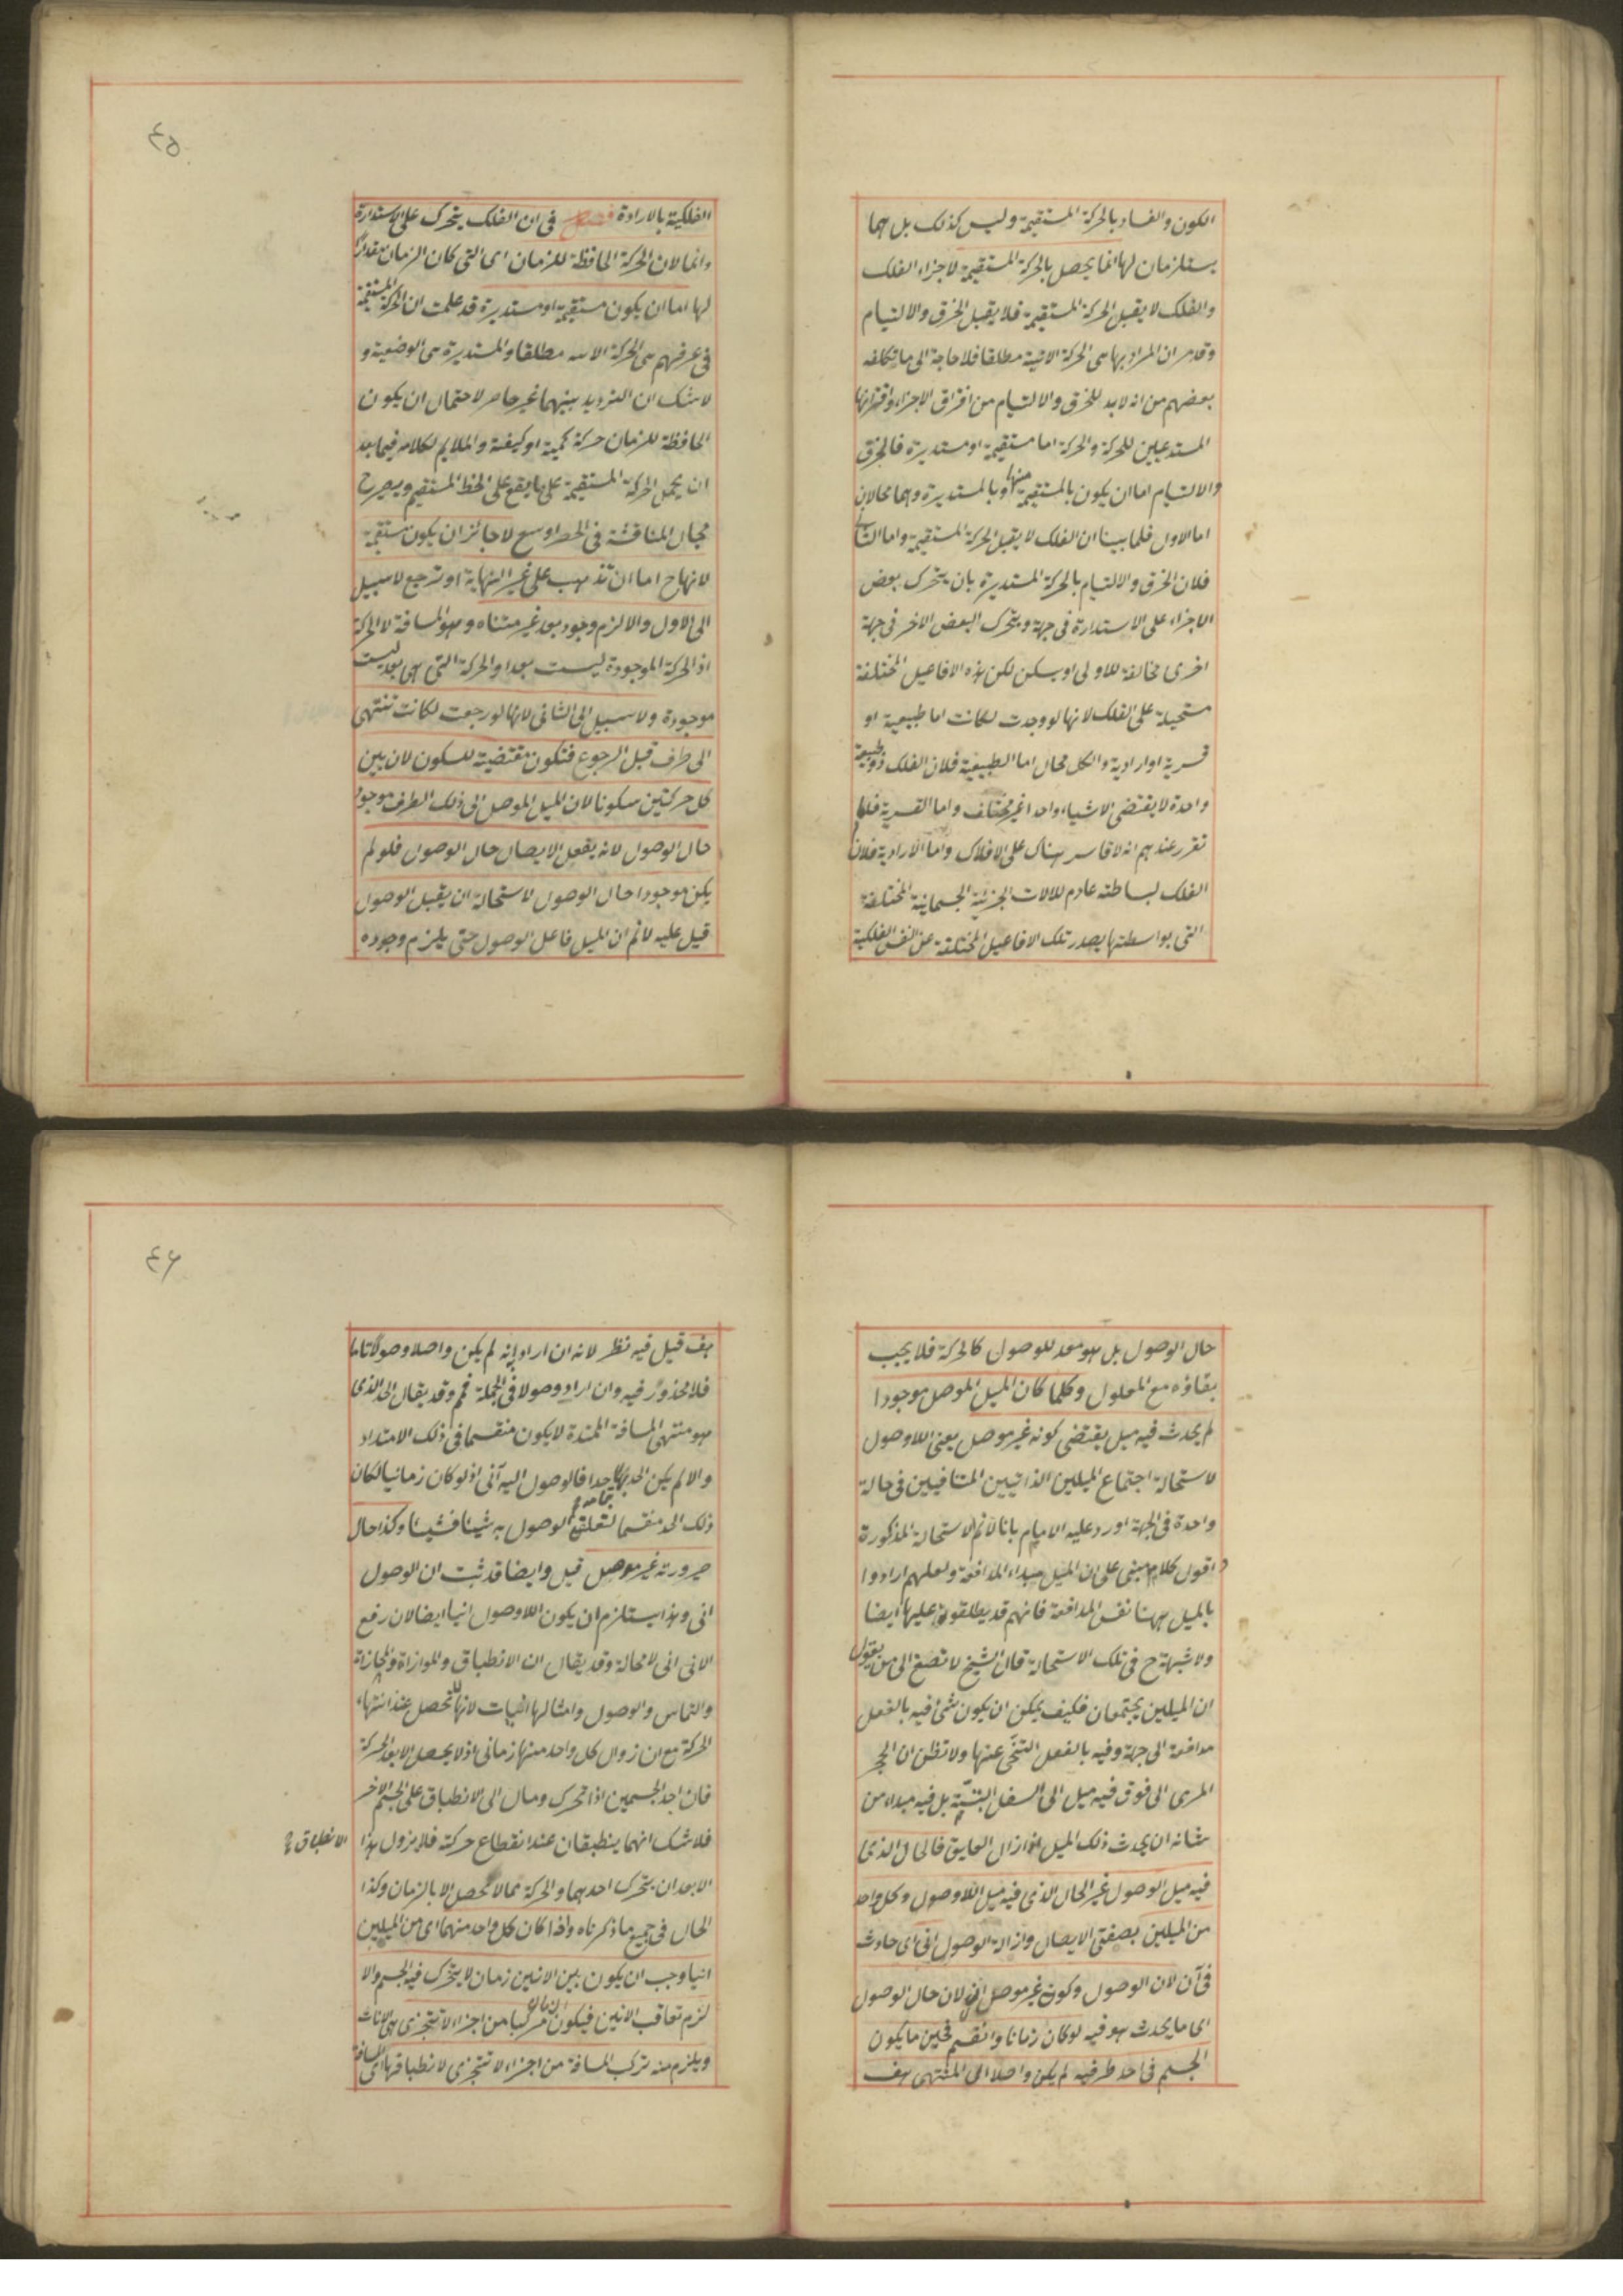 الكون والفساد بالحركة المستقيمة وليس كذلك بل هما
يستلزمان لها انما يحصل بالحركة المستقيمة لاجزاء الفلك
والفلك لا يقبل الحركة المستقيمة فلا يقبل الخرق والالتيام
وقد مر ان المراد بها هى الحركة الاينية مطلقا فلا حاجة الى ما تكلفه
بعضهم من انه لابد للخرق والالتيام من افتراق الاجزاء واقترانها
المستدعيين للحركة والحركة اما مستقيمة او مستديرة فالخرق
والالتيام اما ان يكون بالمستقيمة منها او بالمستديرة وهما محالان
اما الاول فلما بينا ان الفلك لا يقبل الحركة المستقيمة واما الثانى
فلان الخرق والالتيام بالحركة المستديرة بان يتحرك بعض
الاجزاء على الاستدارة فى جهة ويتحرك البعض الاخر فى جهة
اخرى مخالفة للاولى او يسكن لكن هذه الافاعيل المختلفة
مستحيلة على الفلك لانها لو وجدت لكانت اما طبيعية او
قسرية او ارادية والكل محال اما الطبيعية فلان الفلك ذو طبيعة
واحدة لا يقتضى الا شياء واحدا غير مختلف واما القسرية فلما
تقرر عندهم انه لا قاسر هناك على الافلاك واما الارادية فلان
الفلك لبساطته عادم للالات الجزئية الجسمانية المختلفة
التى بواسطتها يصدر تلك الافاعيل المختلفة عن النفس الفلكية
٤٥
الفلكية بالارادة فصل فى ان الفلك يتحرك على الاستدارة
وانما لان الحركة الحافظة للزمان اى التى كان الزمان مقدارا
لها اما ان يكون مستقيمة او مستديرة قد علمت ان الحركة المستقيمة
فى عرفهم هى الحركة الاينيه مطلقا والمستديرة هى الوضعية و
لا شك ان الترديد بينهما غير حاصر لاحتمال ان يكون
الحافظة للزمان حركة كمية او كيفية والملايم لكلامه فيما بعد
ان يحمل الحركة المستقيمة على ما يقع على الخط المستقيم ويصرح
مجال المناقشة فى الحصر اوسع لا جائز ان يكون مستقيمة
لانها ح اما ان تذهب على غير النهاية او ترجع لا سبيل
الى الاول والا لزم وجود بعد غير متناه وهو المسافة لا الحركة
اذ الحركة الموجودة ليست بعدا والحركة التى هى بعد ليست
موجودة ولا سبيل الى الثانى لانها لو رجعت لكانت تنتهى
الى طرف قبل الرجوع فتكون مقتضية للسكون لان بين
كل حركتين سكونا لان الميل الموصل الى ذلك الطرف موجود
حال الوصول لانه يفعل الايصال حال الوصول فلو لم
يكن موجودا حال الوصول لاستحالة ان يقبل الوصول
قيل عليه لا نم ان الميل فاعل الوصول حتى يلزم وجوده
حال الوصول بل هو معد للوصول كالحركة فلا يجب
بقاؤه مع المعلول وكلما كان الميل الموصل موجودا
لم يحدث فيه ميل يقتضى كونه غير موصل يعنى اللاوصول
لاستحالة اجتماع الميلين الذاتيين المتنافيين فى حالة
واحدة فى الجهة اورد عليه الامام بانا لا نم الاستحالة المذكورة
واقول كلامه مبنى على ان الميل مبداء المدافعة ولعلهم ارادوا
بالميل ههنا نفس المدافعة فانهم قد يطلقونه عليها ايضا
ولا شبهة ح فى تلك الاستحالة قال الشيخ لا تصغ الى من يقول
ان الميلين يجتمعان فكيف يمكن ان يكون شئ فيه بالفعل
مدافعة الى جهة وفيه بالفعل التنحى عنها ولا تظن ان الحجر
المرمى الى فوق فيه ميل الى السفل البتة بل فيه مبداء من
شانه ان يحدث ذلك الميل اذا زال العايق فالحال الذى
فيه ميل الوصول غير الحال الذى فيه ميل اللاوصول وكل واحد
من الميلين بصفتى الايصال وازالة الوصول انى اى حادث
فى آن لان الوصول وكونه غير موصل انى لان حال الوصول
اى ما يحدث هو فيه لو كان زمانا وانقسم فحين ما يكون
الجسم فى احد طرفيه لم يكن واصلا الى المنتهى هف
٤٦
هف قيل فيه نظر لانه ان اراد انه لم يكن واصلا وصولا تاما
فلا محذور فيه وان اراد وصولا فى الجملة فمم وقد يقال الحد الذى
هو منتهى المسافة الممتدة لا يكون منقسما فى ذلك الامتداد
والا لم يكن الحد بتمامه حدا فالوصول اليه آنى اذ لو كان زمانيا لكان
ذلك الحد منقسما لتعلق الوصول به شيئا فشيئا وكذا حال
صيرورته غير موصل قيل وايضا قد ثبت ان الوصول
انى وهذا يستلزم ان يكون اللاوصول انيا ايضا لان رفع
الانى انى لا محالة وقد يقال ان الانطباق والموازاة والمحاذاة
والتماس والوصول وامثالها انيات لانها تحصل عند انتهاء
الحركة مع ان زوال كل واحد منها زمانى اذ لا يحصل الا بعد الحركة
فان احد الجسمين اذا تحرك ومال الى الانطباق على الجسم الاخر
فلا شك انهما ينطبقان عند انقطاع حركته فلا يزول هذا
الانطباق
الا بعد ان يتحرك احدهما والحركة مما لا تحصل الا بالزمان وكذا
الحال فى جميع ما ذكرناه واذا كان كل واحد منهما اى من الميلين
انيا وجب ان يكون بين الانين زمان لا يتحرك فيه الجسم والا
لزم تعاقب الانين فيكون الزمان مركبا من اجزاء لا تتجزى هى الانات
ويلزم منه تركب المسافة من اجزاء لا تتجزى لانطباقها اى المسافة